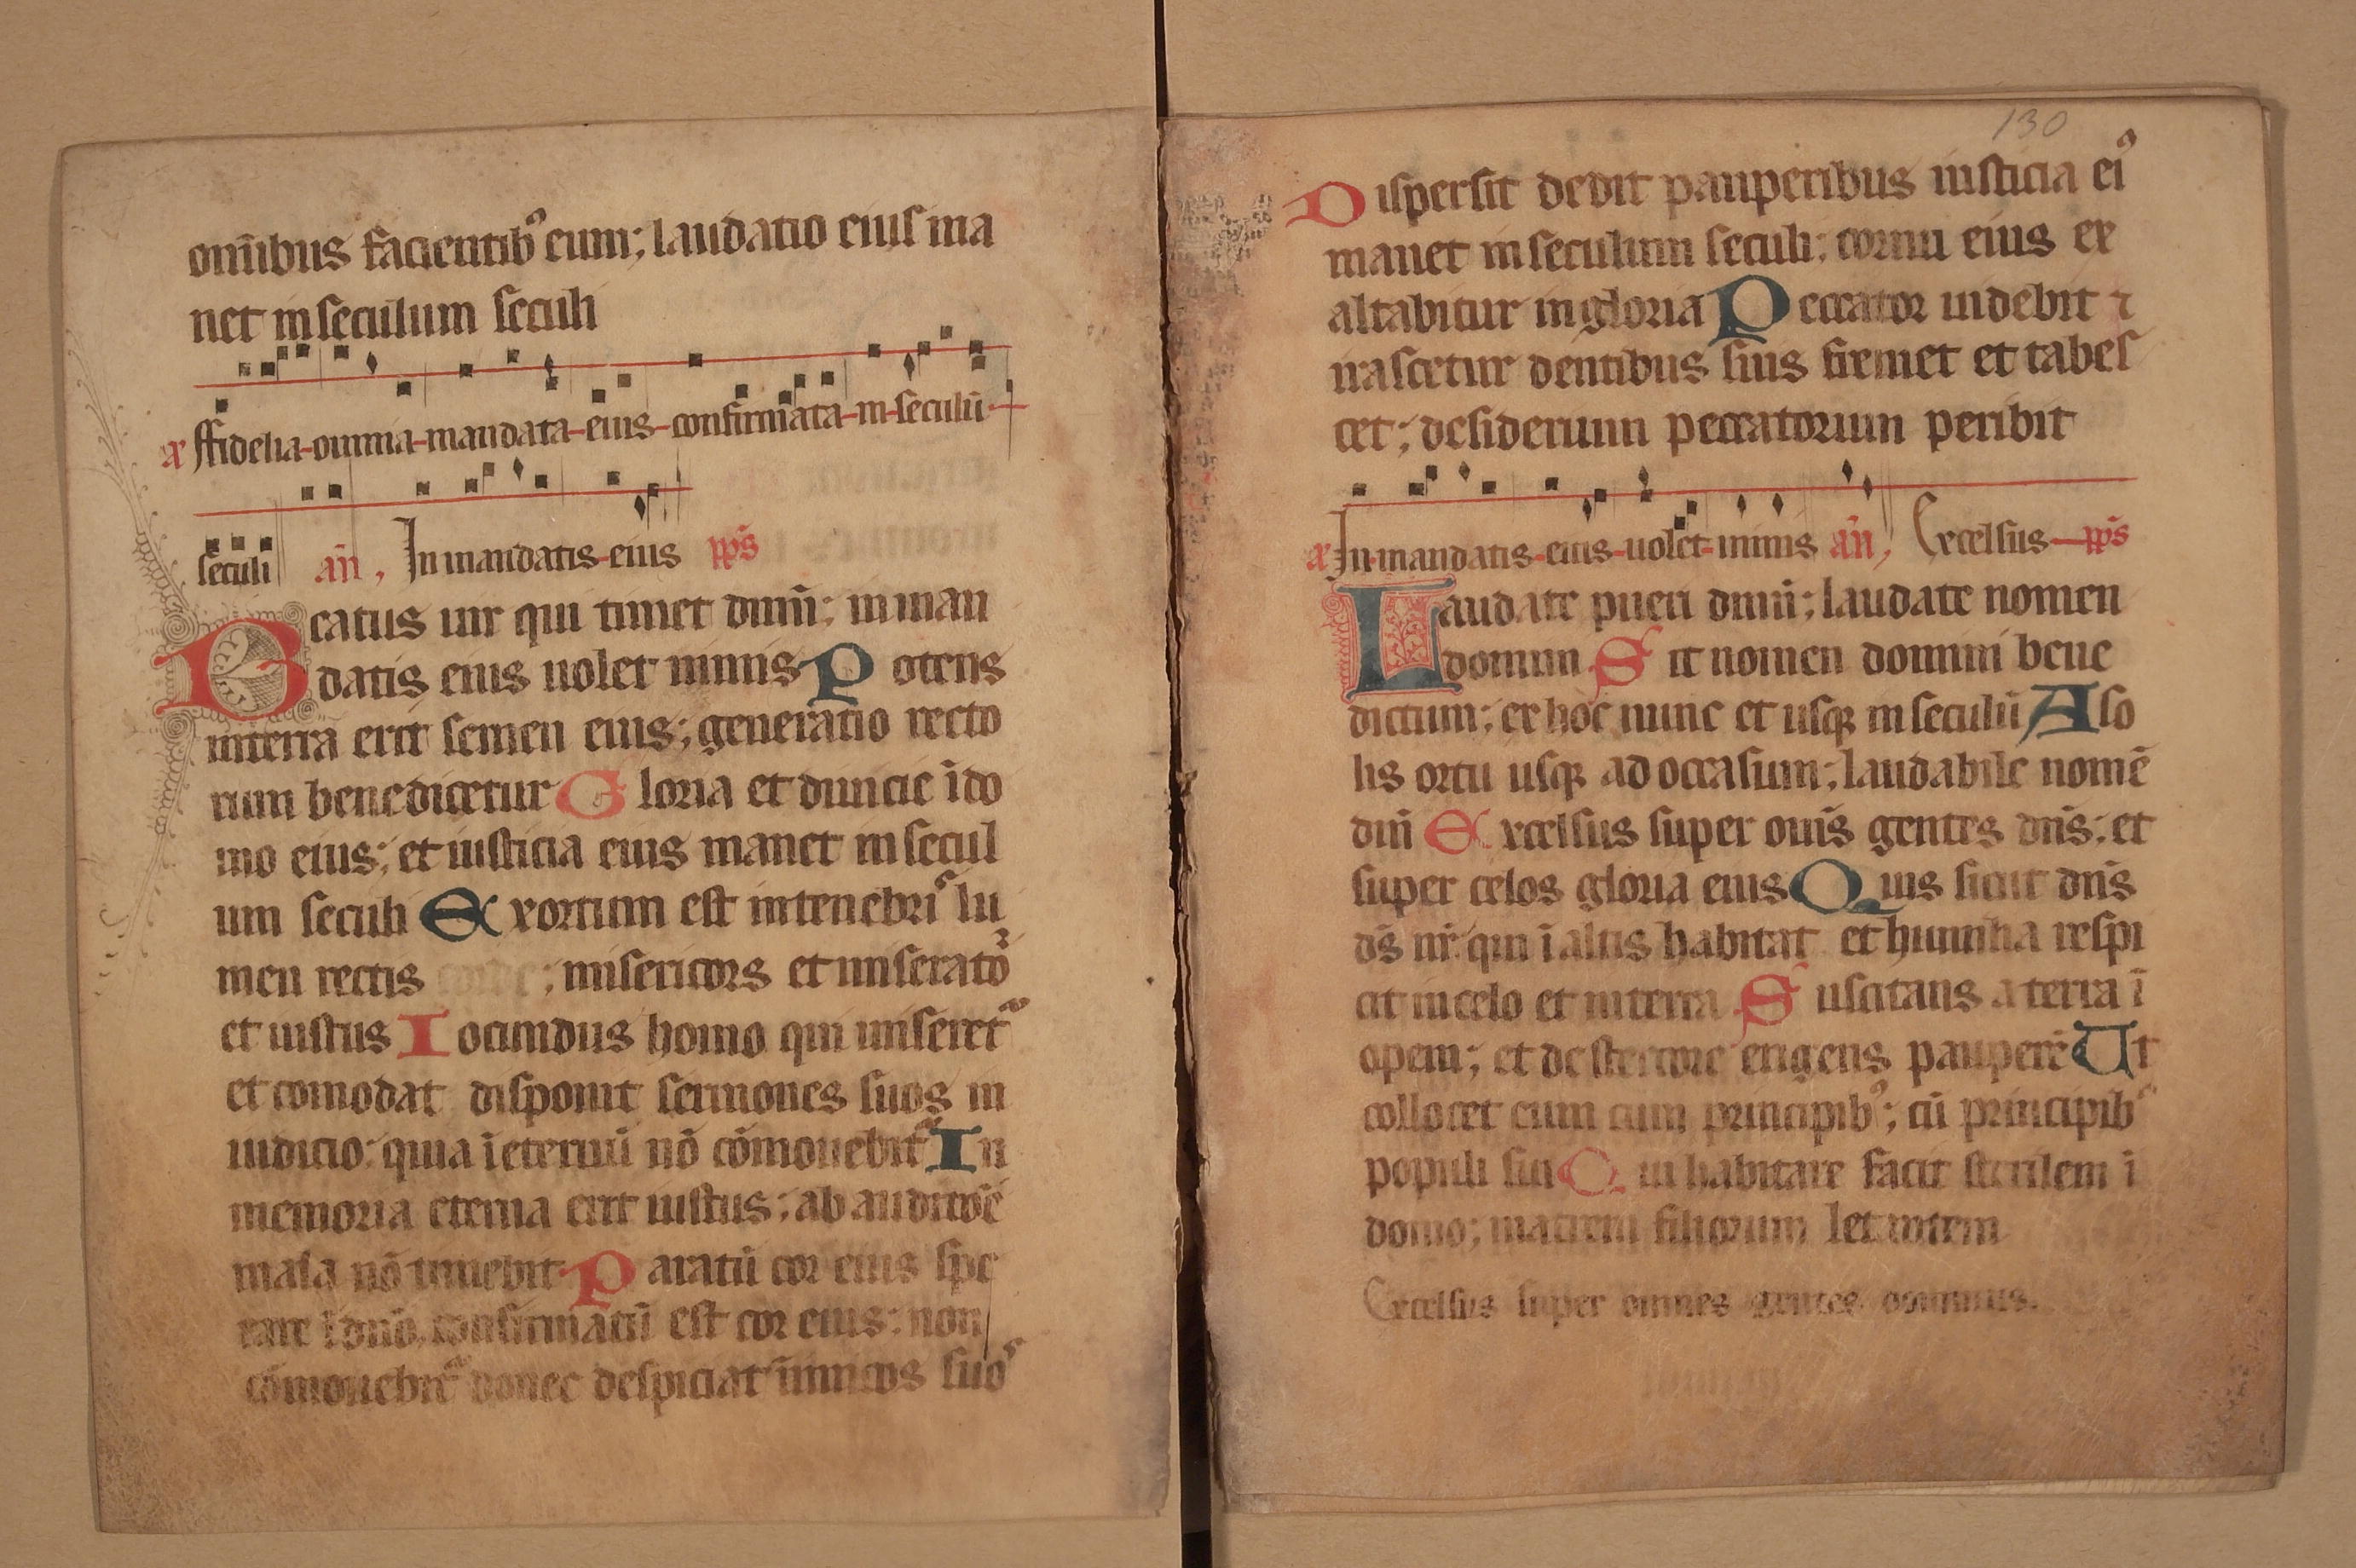 om̄ibus facientib⁹ eum; laudatio eius ma
net in seculum seculi
Ffidelia omnia mandata eius confirmata in seculū
seculi an̄, In mandatis eius ps̄
Beatus uir qui timet dnm̄; in man
datis eius uolet nimis Potens
in terra erit semen eius; generatio recto
rum benedicetur Gloria et diuicie ī do
mo eius; et iusticia eius manet in secul
um seculi Exortum est in tenebris lu
men rectis corde; misericors et miserator
et iustus Iocundus homo qui miseret᷑
et comodat disponit sermones suos in
iudicio; quia ī eternū nō cōmouebit᷑ In
memoria eterna erit iustus; ab auditōe
mala nō timebit Paratū cor eius spe
rare ī dn̄o, confirmatū est cor eius; non
cōmouebit᷑ donec despiciat īnimicos suos
130
Dispersit dedit pauperibus iusticia ei⁹
manet in seculum seculi; cornu eius ex
altabitur in gloria Peccator uidebit ⁊
irascetur dentibus suis fremet et tabes
cet; desiderium peccatorum peribit
In mandatis eius uolet nimis an̄, Excelsus ps̄
Laudate pueri dnm̄; laudate nomen
domini Sit nomen domini bene
dictum; ex hoc nunc et usq; in seculū A so
lis ortu usq; ad occasum; laudabile nomē
dnī Excelsus super om̄s gentes dns̄; et
super celos gloria eius Quis sicut dns̄
ds̄ nr̄ qui ī altis habitat et humilia respi
cit in celo et in terra Suscitans a terra ī
opem; et de stercore erigens pauperē Ut
collocet eum cum principib⁹; cū principib⁹
populi sui Qui habitare facit sterilem ī
domo; matrem filiorum letantem
Excelsus super omnes gentes dominus.